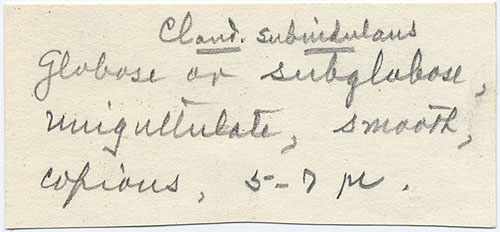 Cland. subindulans
Globose or subglobose,
uniguttulate, smooth,
copious, 5-7 µ.